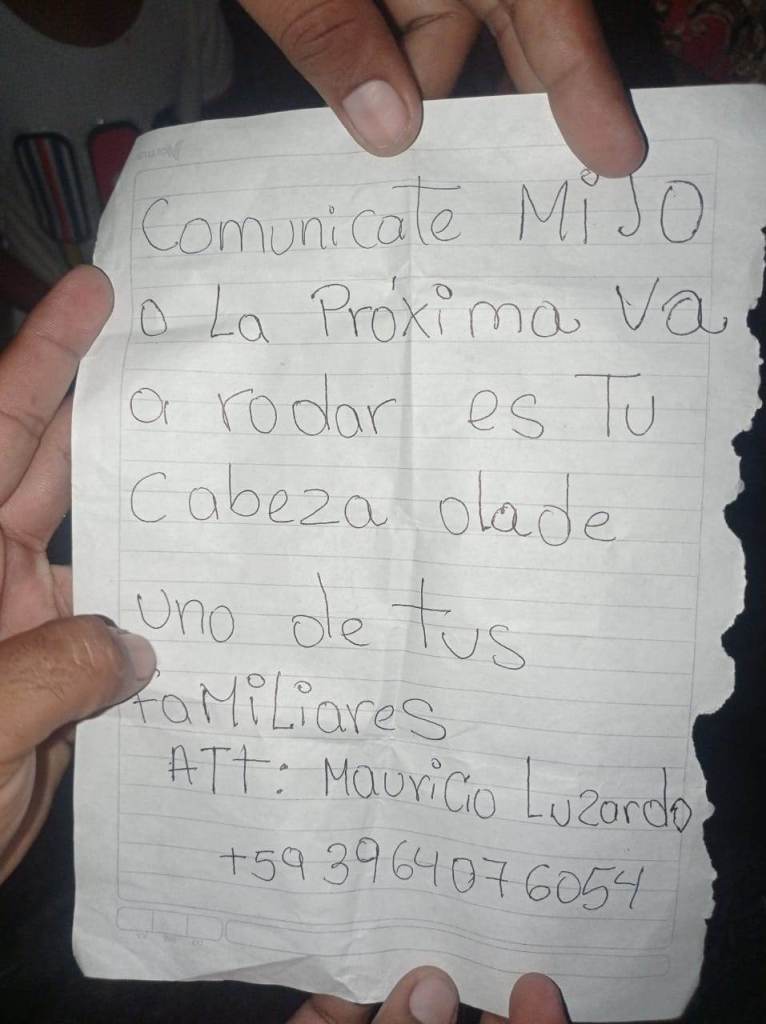 Comunicate MiJO
o La Próxima Va
a rodar es Tu
Cabeza olade
uno de tus
faMiLiares
ATt: Mauricio Luzardo
+593964076054